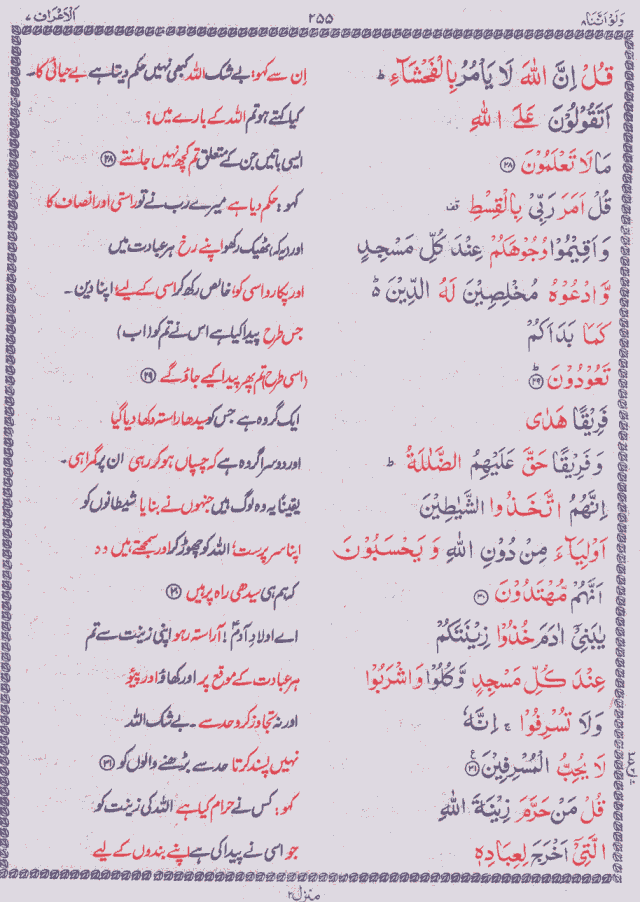 وَلَوْ اَنَّنَا ٨ ٢٥٥ اَلْاَعْرَاف ٧
قُلْ اِنَّ اللّٰهَ لَا يَاْمُرُ بِالْفَحْشَآءِ ؕ اِن سے کہو: بے شک اللہ کبھی نہیں حکم دیتا ہے بے حیائی کا۔
اَتَقُوْلُوْنَ عَلَى اللّٰهِ کیا کہتے ہو تم اللہ کے بارے میں؟
مَا لَا تَعْلَمُوْنَ ۝٢٨ ایسی باتیں جن کے متعلق تم کچھ نہیں جانتے ۝٢٨
قُلْ اَمَرَ رَبِّيْ بِالْقِسْطِ قف کہو: حکم دیا ہے میرے رب نے تو راستی اور انصاف کا
وَاَقِيْمُوْا وُجُوْهَكُمْ عِنْدَ كُلِّ مَسْجِدٍ اور یہ کہ ٹھیک رکھو اپنے رخ ہر عبادت میں
وَّادْعُوْهُ مُخْلِصِيْنَ لَهُ الدِّيْنَ ؕ اور پکارو اسی کو، خالص رکھ کر اسی کے لیے، اپنا دین۔
كَمَا بَدَاَكُمْ جس طرح پیدا کیا ہے اس نے تم کو (اب)
تَعُوْدُوْنَ ۝٢٩ؕ (اسی طرح) تم پھر پیدا کیے جاؤ گے ۝٢٩
فَرِيْقًا هَدٰى ایک گروہ ہے جس کو سیدھا راستہ دکھا دیا گیا
وَفَرِيْقًا حَقَّ عَلَيْهِمُ الضَّلٰلَةُ ؕ اور دوسرا گروہ ہے کہ چسپاں ہو کر رہی ان پر گمراہی۔
اِنَّهُمُ اتَّخَذُوا الشَّيٰطِيْنَ یقینًا یہ وہ لوگ ہیں جنہوں نے بنا لیا شیطانوں کو
اَوْلِيَآءَ مِنْ دُوْنِ اللّٰهِ وَيَحْسَبُوْنَ اپنا سرپرست، اللہ کو چھوڑ کر اور سمجھتے ہیں وہ
اَنَّهُمْ مُّهْتَدُوْنَ ۝٣٠ کہ ہم ہی سیدھی راہ پر ہیں ۝٣٠
يٰبَنِيْٓ اٰدَمَ خُذُوْا زِيْنَتَكُمْ اے اولادِ آدم! آراستہ رہو اپنی زینت سے تم
عِنْدَ كُلِّ مَسْجِدٍ وَّكُلُوْا وَاشْرَبُوْا ہر عبادت کے موقع پر اور کھاؤ اور پیئو
وَلَا تُسْرِفُوْا ۚ اِنَّهٗ اور نہ تجاوز کرو حد سے۔ بے شک اللہ
لَا يُحِبُّ الْمُسْرِفِيْنَ ۝٣١ع نہیں پسند کرتا حد سے بڑھنے والوں کو ۝٣١
قُلْ مَنْ حَرَّمَ زِيْنَةَ اللّٰهِ کہو: کس نے حرام کیا ہے اللہ کی زینت کو
الَّتِيْٓ اَخْرَجَ لِعِبَادِهٖ جو اسی نے پیدا کی ہے اپنے بندوں کے لیے
منزل ٢